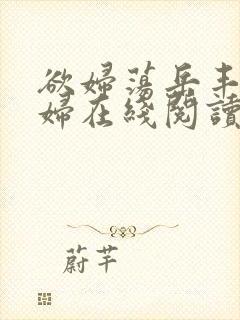 欲婦蕩岳丰
婦在綫閱讀
蔚芊